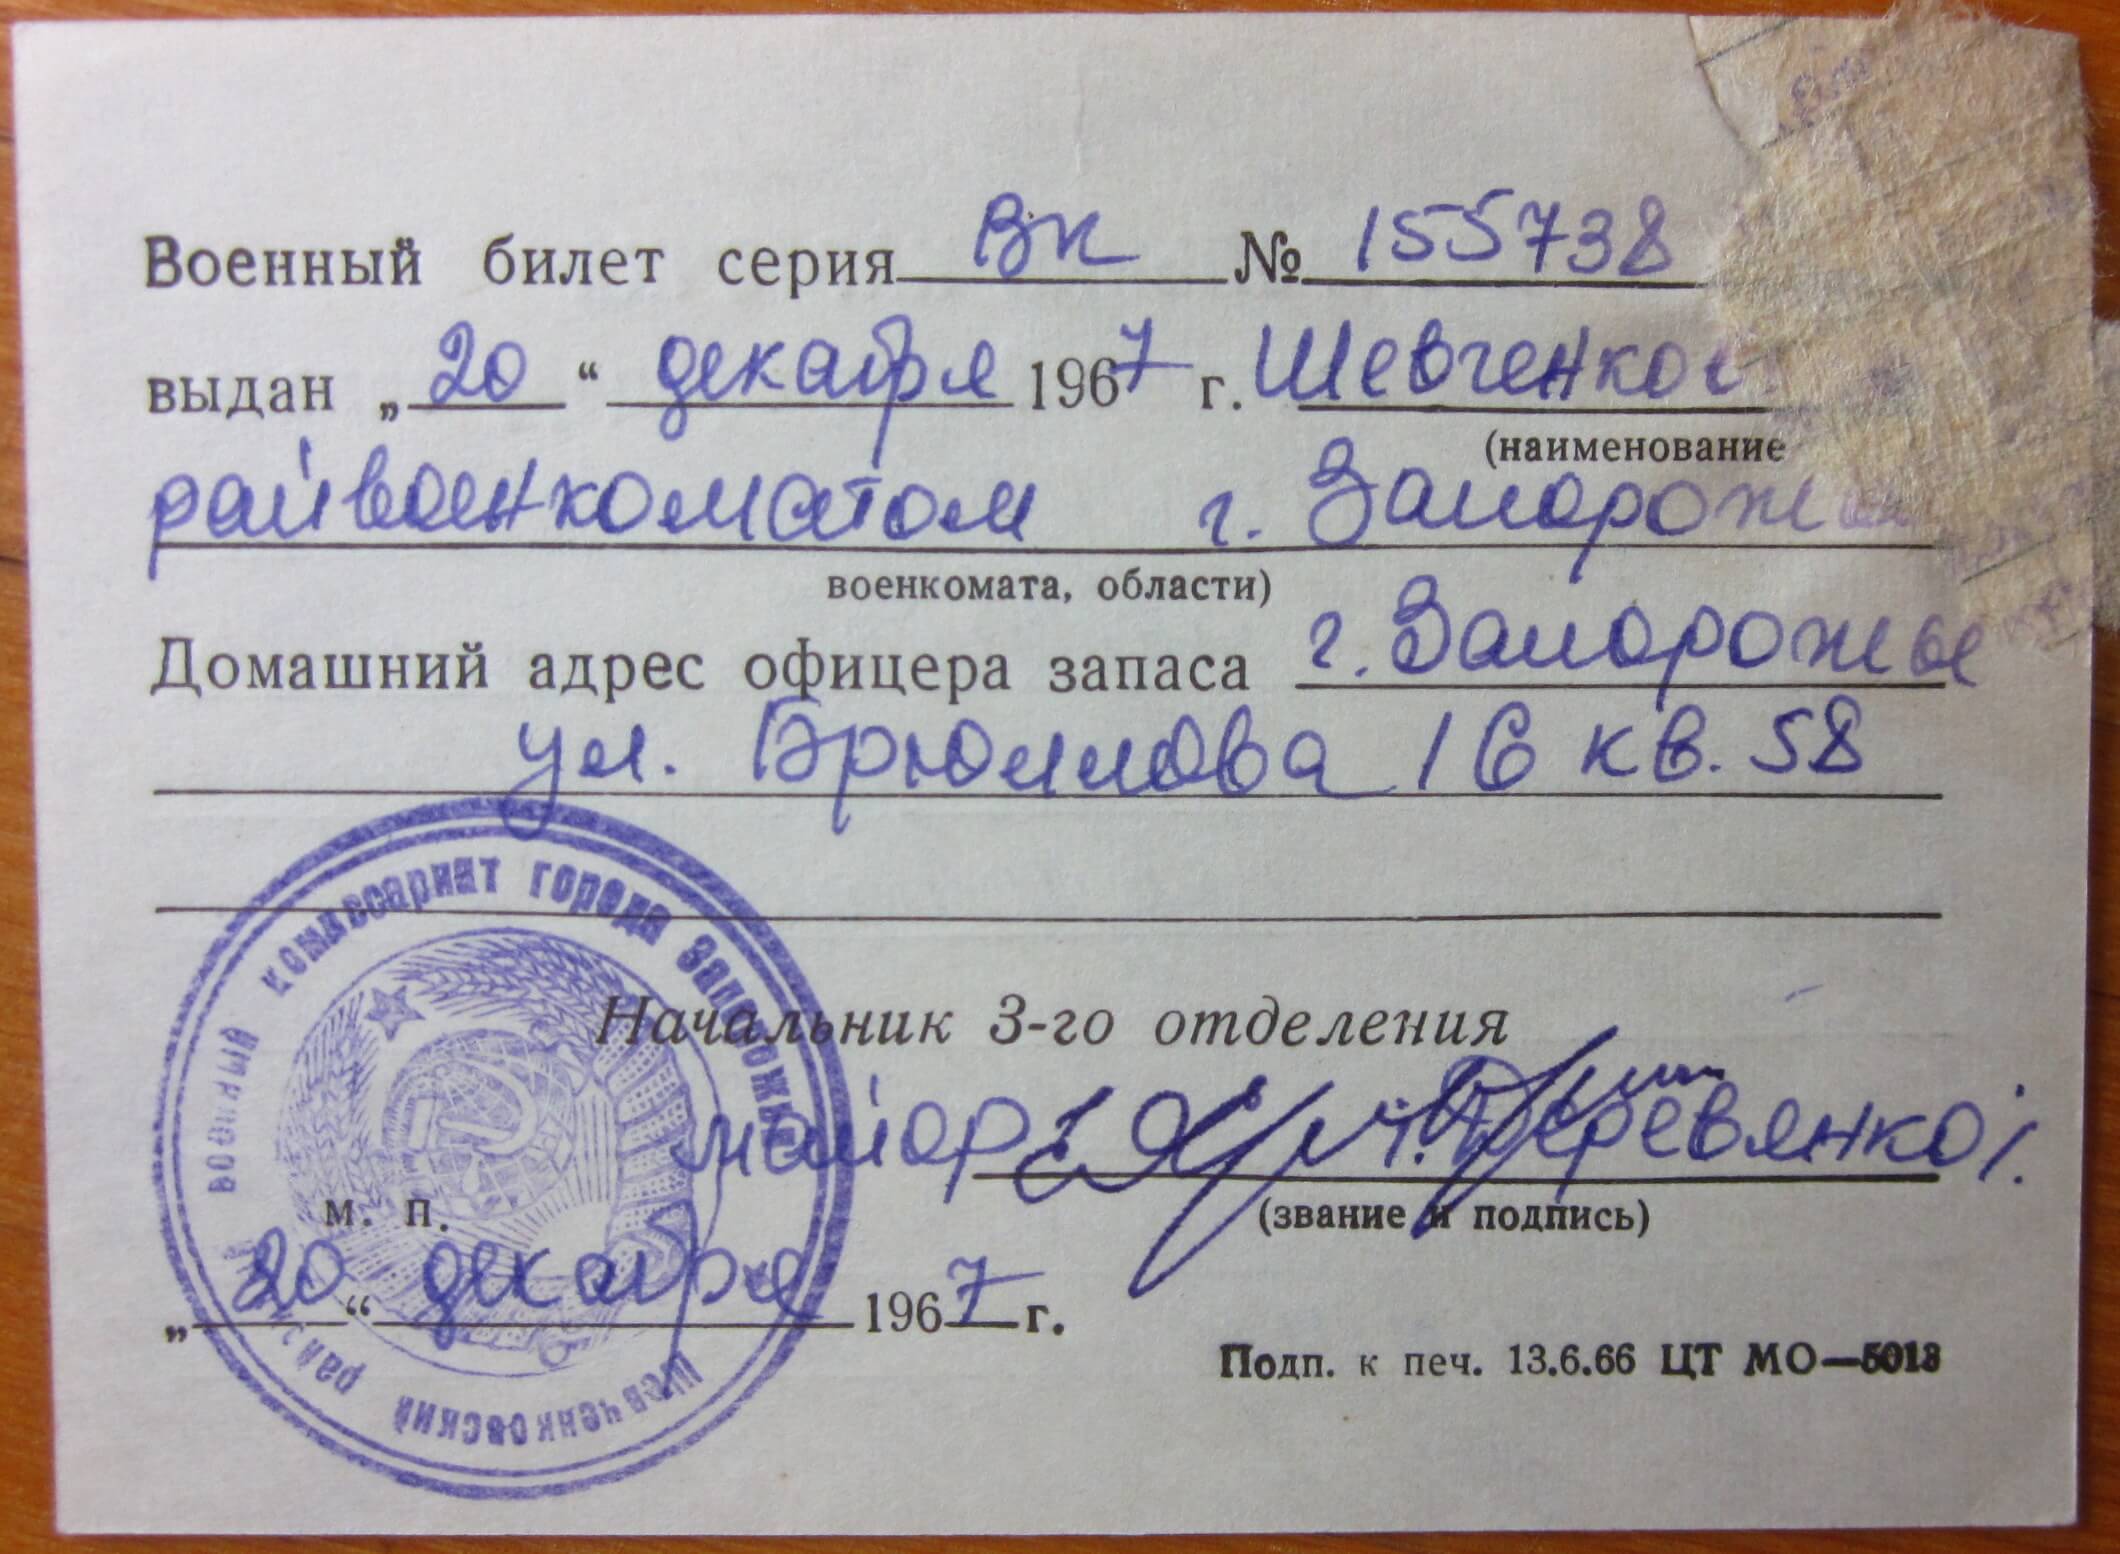 Военный билет серия ВК № 155738
выдан „20“ декабря 1967 г.
(наименование
райвоенкоматом г. Запорожья
военкомата, области)
Домашний адрес офицера запаса г. Запорожье
ул. Брюллова 16 кв. 58
военный комиссариат города Запорожья
Шевченковский район
Начальник 3-го отделения
майор Деревянко
м. п.
(звание и подпись)
„20“ декабря 1967 г.
Подп. к печ. 13.6.66 ЦТ МО—5013